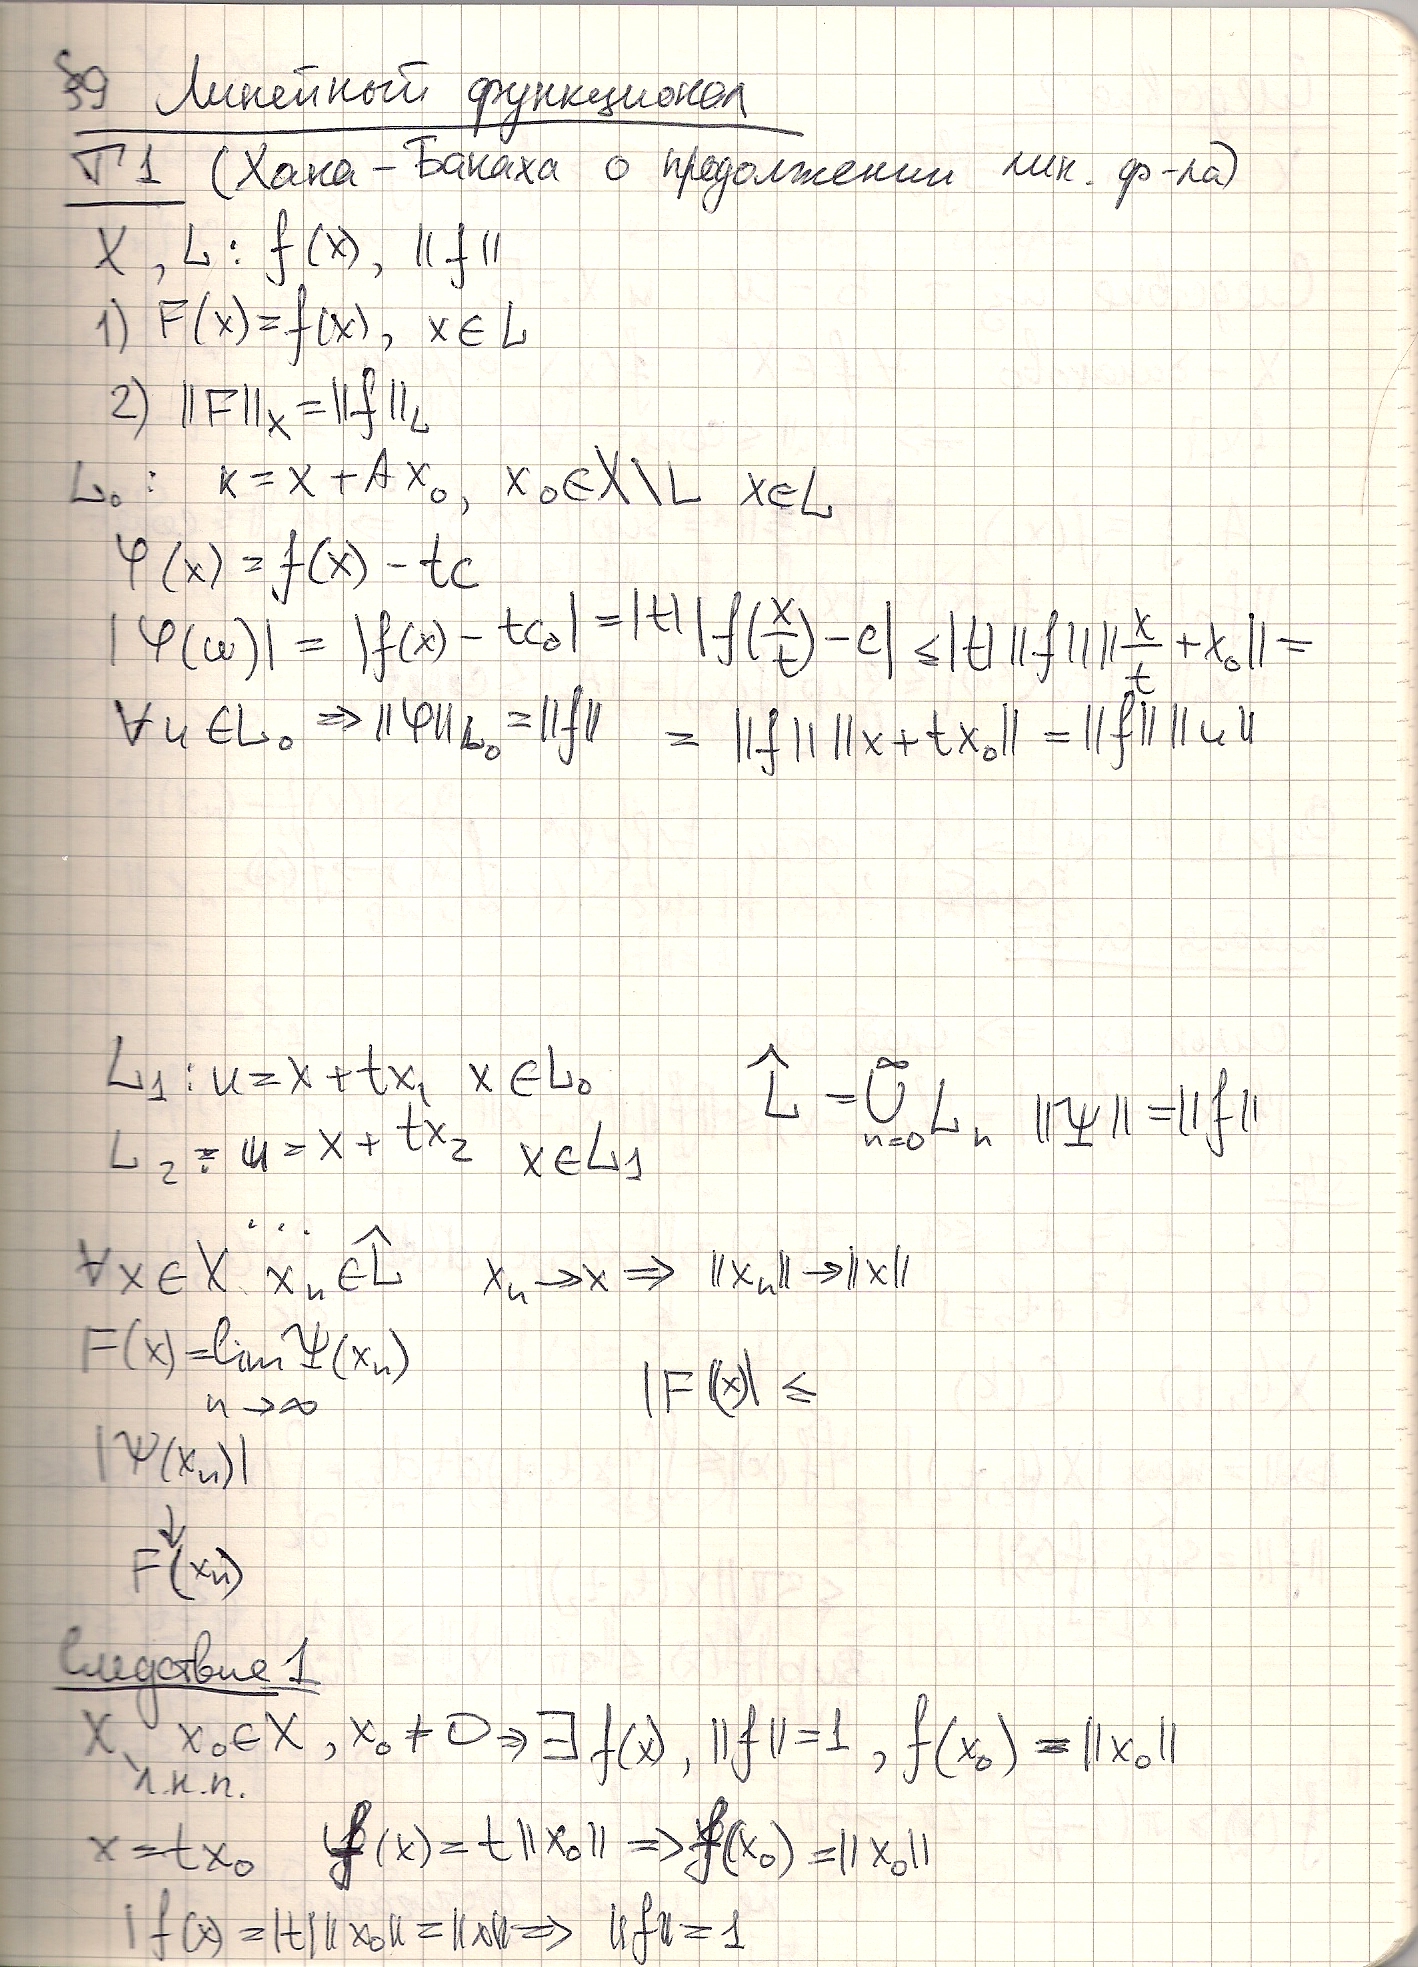 §9 Линейный функционал
Т1 (Хана-Банаха о продолжении лин. ф-ла)
X, L: f(x), ||f||
1) F(x)=f(x), x∈L
2) ||F||_X=||f||_L
L₀: x=x+Ax₀, x₀∈X\L x∈L
φ(x)=f(x)-tc
|φ(u)|=|f(x)-tc₀|=|t||f(x/t)-c|≤|t|||f||||x/t+x₀||=
∀u∈L₀ ⇒ ||φ||_L₀=||f|| =||f||||x+tx₀||=||f||||u||
L₁: u=x+tx₁ x∈L₀
L₂: u=x+tx₂ x∈L₁
L̂=∪_{n=0}^∞ L_n ||Ψ||=||f||
...
∀x∈X x_n∈L̂ x_n→x ⇒ ||x_n||→||x||
F(x)=lim Ψ(x_n)
n→∞
|F(x)|≤
|Ψ(x_n)|
↓
F(x_n)
Следствие 1
X, x₀∈X, x₀≠0 ⇒ ∃f(x), ||f||=1, f(x₀)=||x₀||
л.н.п.
x=tx₀ f(x)=t||x₀|| ⇒ f(x₀)=||x₀||
|f(x)=|t|||x₀||=||x|| ⇒ ||f||=1